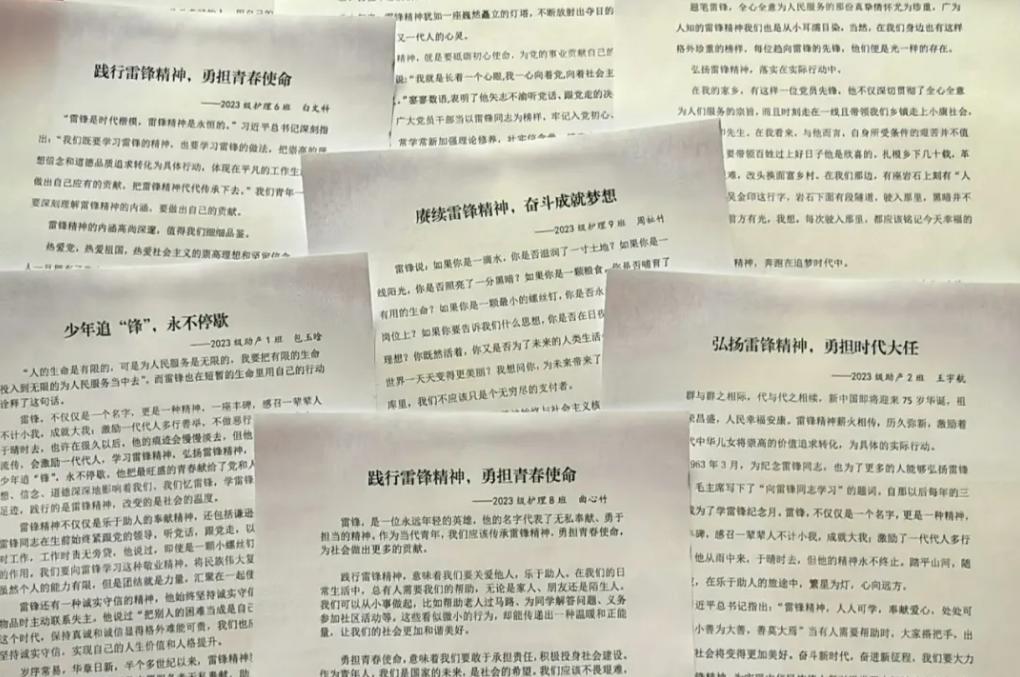 践行雷锋精神，勇担青春使命
——2023级护理6班 白文科
“雷锋是时代楷模，雷锋精神是永恒的。”习近平总书记深刻指
出：“我们既要学习雷锋的精神，也要学习雷锋的做法，把崇高的理
想信念和道德品质追求转化为具体行动，体现在平凡的工作生
做出自己应有的贡献，把雷锋精神代代传承下去。”我们青年一
要深刻理解雷锋精神的内涵，要做出自己的贡献。
雷锋精神的内涵高尚深邃，值得我们细细品鉴。
热爱党，热爱祖国，热爱社会主义的崇高理想和坚定信念
雷锋精神犹如一座巍然矗立的灯塔，不断放射出夺目的
又一代人的心灵。
精神，就是要砥砺初心使命，为党的事业贡献自己的
说：“我就是长着一个心眼，我一心向着党，向着社会主
”寥寥数语，表明了他矢志不渝听党话、跟党走的决
广大党员干部当以雷锋同志为榜样，牢记入党初心，
常学常新加强理论修养，
题笔雷锋，全心全意为人民服务的那份真挚情怀尤为珍重，广为
人知的雷锋精神我们也是从小耳濡目染，当然，在我们身边也有这样
格外珍重的榜样，每位趋向雷锋的先锋，他们便是光一样的存在。
弘扬雷锋精神，落实在实际行动中。
在我的家乡，有这样一位党员先锋，他不仅深切贯彻了全心全意
为人们服务的宗旨，而且时刻走在一线且带领我们乡镇走上小康社会，
先生，在我看来，与他而言，自身所受条件的艰苦并不值
要带领百姓过上好日子他是欣喜的，扎根乡下几十载，革
难，改头换面富乡村。在我们那边，有座岩石上刻有“人
吴金印这行字，岩石下面有段隧道，驶入那里，黑暗并不
前方有光，我想，每次驶入那里，都应该铭记今天幸福的
精神，奔跑在追梦时代中。
赓续雷锋精神，奋斗成就梦想
——2023级护理9班 周祉竹
雷锋说：如果你是一滴水，你是否滋润了一寸土地？如果你是一
线阳光，你是否照亮了一分黑暗？如果你是一颗粮食，你是否哺育了
有用的生命？如果你是一颗最小的螺丝钉，你是否永
岗位上？如果你要告诉我们什么思想，你是否在日夜
理想？你既然活着，你又是否为了未来的人类生活
世界一天天变得更美丽？我想问你，为未来带来了
库里，我们不应该只是个无穷尽的支付者。
少年追“锋”，永不停歇
——2023级助产1班 包玉晗
“人的生命是有限的，可是为人民服务是无限的，我要把有限的生命
投入到无限的为人民服务当中去”。而雷锋也在短暂的生命里用自己的行动
诠释了这句话。
雷锋，不仅仅是一个名字，更是一种精神，一座丰碑，感召一辈辈人
不计小我，成就大我；激励一代代人多行善举，不做恶行
于晴时去，也许在很久以后，他的痕迹会慢慢淡去，但他
流传，会激励一代代人，学习雷锋精神，弘扬雷锋精神，
少年追“锋”，永不停歇，他把最旺盛的青春献给了党和人
想、信念、道德深深地影响着我们，我们忆雷锋，学雷锋
足迹，践行的是雷锋精神，改变的是社会的温度。
雷锋精神不仅仅是乐于助人的奉献精神，还包括谦逊
雷锋同志在生前始终紧跟党的领导，听党话，跟党走，以
时工作，工作时责无旁贷，他说过，即便是一颗小螺丝钉
的作用，我们要向雷锋学习这种敬业精神，将民族伟大复
虽然个人的能力有限，但是团结就是力量，汇聚在一起便
雷锋还有一种诚实守信的精神，他始终坚持诚实守信
物品时主动联系失主，他说过“把别人的困难当成是自己
这个时代，保持真诚和诚信显得格外难能可贵，我们也应
坚持诚实守信，实现自己的人生价值和人格提升。
岁序常易，华章日新，半个多世纪以来，雷锋精神
践行雷锋精神，勇担青春使命
——2023级护理8班 曲心竹
雷锋，是一位永远年轻的英雄，他的名字代表了无私奉献、勇于
担当的精神，作为当代青年，我们应该传承雷锋精神，勇担青春使命，
为社会做出更多的贡献。
践行雷锋精神，意味着我们要关爱他人，乐于助人。在我们的日
常生活中，总有人需要我们的帮助，无论是家人、朋友还是陌生人。
我们可以从小事做起，比如帮助老人过马路、为同学解答问题、义务
参加社区活动等。这些看似微小的行为，却能传递出一种温暖和正能
量，让我们的社会更加和谐美好。
勇担青春使命，意味着我们要敢于承担责任，积极投身社会建设。
作为青年人，我们是国家的未来，是社会的希望。我们应该不畏艰难，
弘扬雷锋精神，勇担时代大任
——2023级助产2班 王宇航
群与群之相际，代与代之相续，新中国即将迎来75岁华诞，祖
荣昌盛，人民幸福安康。雷锋精神薪火相传，历久弥新，激励着
代中华儿女将崇高的价值追求转化，为具体的实际行动。
963年3月，为纪念雷锋同志，也为了更多的人能够弘扬雷锋
毛主席写下了“向雷锋同志学习”的题词，自那以后每年的三
成为了学雷锋纪念月，雷锋，不仅仅是一个名字，更是一种精神，
碑，感召一辈辈人不计小我，成就大我；激励了一代代人多行
他从雨中来，于晴时去，但他的精神永不终止。踏平山河，随
，在乐于助人的旅途中，繁星为灯，心向远方。
近平总书记指出：“雷锋精神，人人可学，奉献爱心，处处可
小善为大善，善莫大焉”当有人需要帮助时，大家搭把手，出
社会将变得更加美好。奋斗新时代，奋进新征程，我们要大力